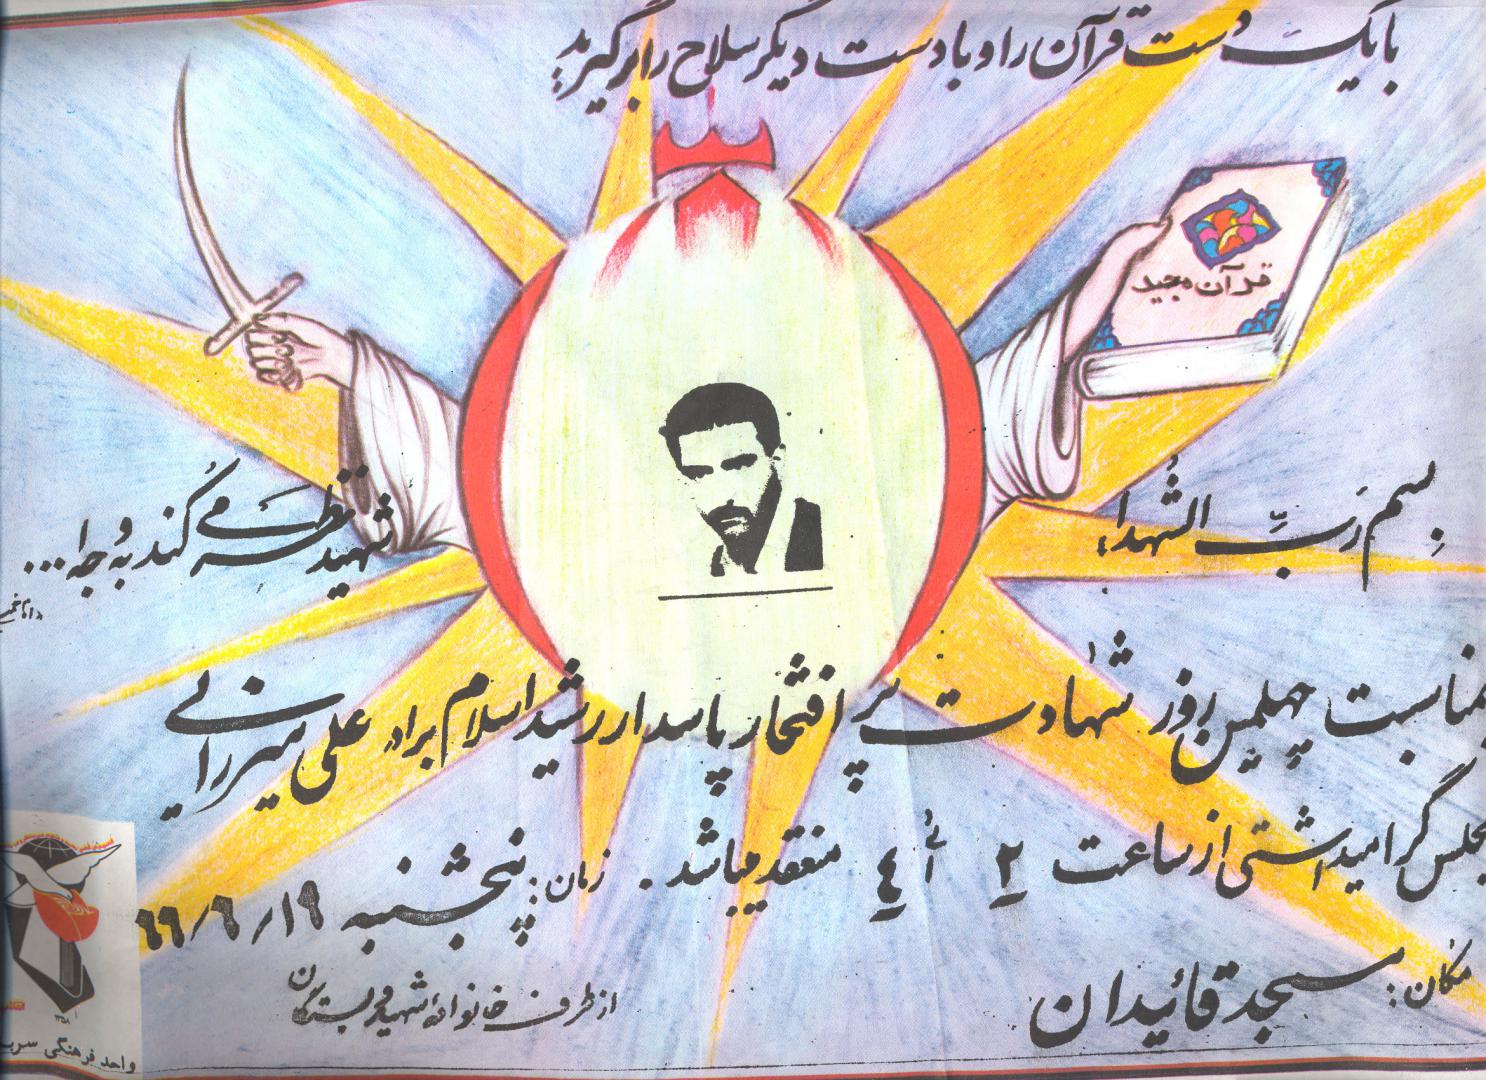 با یک دست قرآن را و با دست دیگر سلاح را برگیرید
قرآن مجید
بسم رب الشهداء
شهید نظر می کند به وجه ا...
بمناسبت چهلمین روز شهادت پر افتخار پاسدار رشید اسلام برادر علی میرزائی
مجلس گرامیداشتی از ساعت ۲ تا ٤ منعقد میباشد. زمان: پنجشنبه ۱۹/۶/۶۶
مکان: مسجد قائیدان
از طرف خانواده شهید و بستگان
واحد فرهنگی